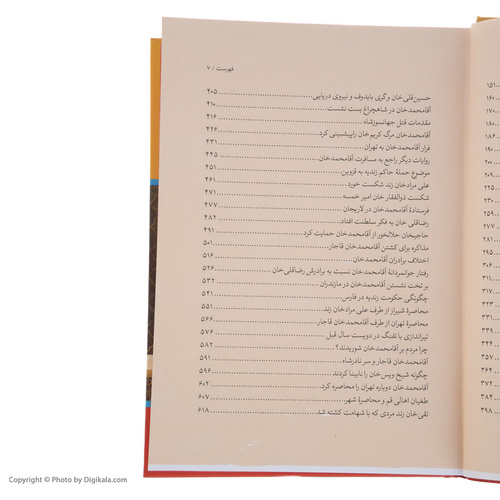 فهرست / ۷
حسین‌قلی‌خان و گری بایدوف و نیروی دریایی ۴۰۵
آقامحمدخان در شاهچراغ بست نشست ۴۱۰
مقدمات قتل جهانسوزشاه ۴۱۶
آقامحمدخان مرگ کریم‌خان را پیشبینی کرد ۴۲۶
فرار آقامحمدخان به تهران ۴۳۱
روایات دیگر راجع به مسافرت آقامحمدخان ۴۴۵
موضوع حملهٔ حاکم زندیه به قزوین ۴۵۱
علی مرادخان زند شکست خورد ۴۶۱
شکست ذوالفقار خان امیر خمسه ۴۷۱
فرستادهٔ آقامحمدخان در لاریجان ۴۷۷
رضاقلی خان به فکر سلطنت افتاد ۴۸۲
حاجیخان حلالخور از آقامحمدخان حمایت کرد ۴۹۱
مذاکره برای کشتن آقامحمدخان قاجار ۵۰۱
اختلاف برادران آقامحمدخان ۵۱۶
رفتار جوانمردانهٔ آقامحمدخان نسبت به برادرش رضاقلی‌خان ۵۲۶
بر تخت نشستن آقامحمدخان در مازندران ۵۳۲
چگونگی حکومت زندیه در فارس ۵۴۱
محاصرهٔ شیراز از طرف علی مرادخان زند ۵۵۱
محاصرهٔ تهران از طرف آقامحمدخان قاجار ۵۶۶
تیراندازی با تفنگ در دویست سال قبل ۵۷۶
چرا مردم بر آقامحمدخان شوریدند؟ ۵۸۲
آقامحمدخان قاجار و سر نادرشاه ۵۹۱
چگونه شیخ ویس‌خان را نابینا کردند ۵۹۶
آقامحمدخان دوباره تهران را محاصره کرد ۶۰۲
طغیان اهالی قم و محاصرهٔ شهر ۶۰۷
تقی‌خان زند مردی که با شهامت کشته شد ۶۱۸
۱۵۱
۱۶۰
۱۷۰
۱۸۰
۱۹۰
۲۰۰
۲۰۹
۲۲۵
۲۳۰
۲۵۹
۲۷۷
۲۸۱
۲۹۵
۳۰۶
۳۱۷
۳۲۳
۳۳۱
۳۳۹
۳۴۴
۳۵۷
۳۶۴
۳۷۲
۳۸۴
۳۹۸
Copyright © Photo by Digikala.com